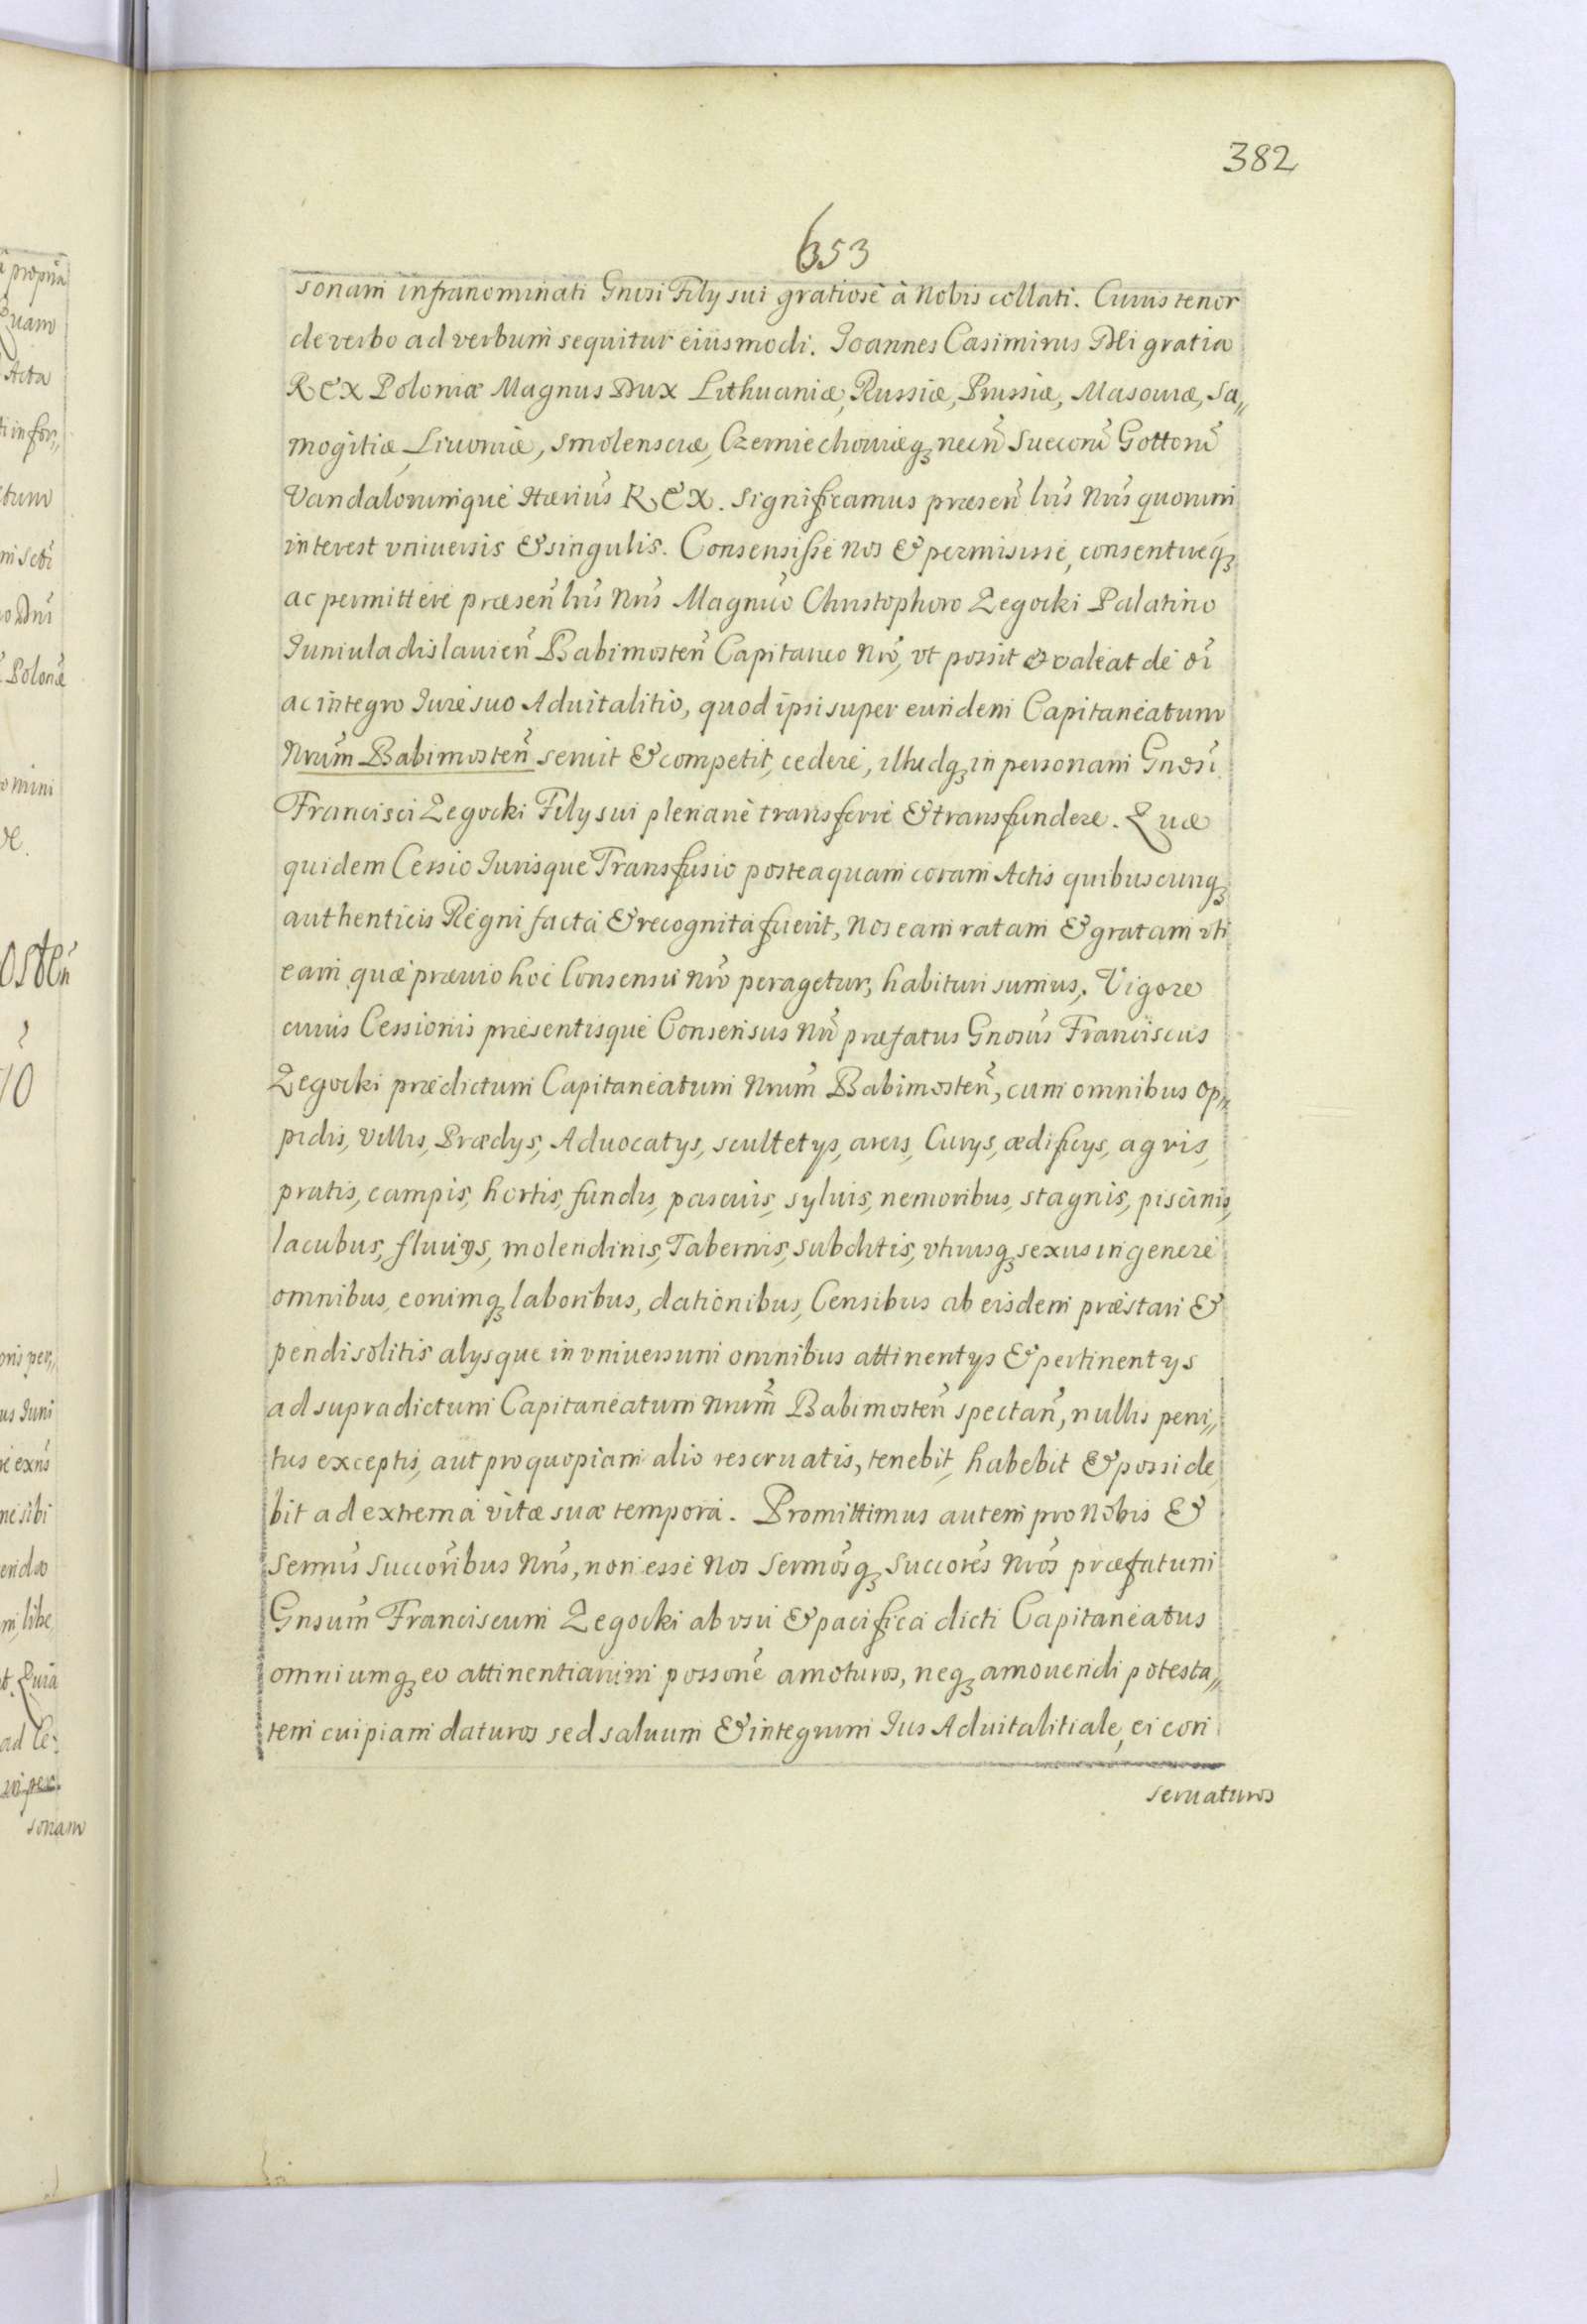 382
653
sonam infranominati Gnosi Filÿ sui gratiosè à Nobis collati. Cuius tenor
de verbo ad verbum sequitur eiusmodi. Ioannes Casimirus DEi gratia
REX Poloniæ Magnus Dux Lithuaniæ, Russiæ, Prussiæ, Masouiæ, Sa„
mogitiæ, Liuoniæ, Smolensciæ, Czerniechouiæq; necñ Suecorũ Gottorũ
Vandalorumque Hærius REX. Significamus præseñ lrĩs Nrĩs quorum
interest vniuersis & singulis. Consensisse nos & permisisse, consentireq;
ac permittere præseñ lrĩs Nrĩs Magnĩco Christophoro Zegocki Palatino
Iuniuladislauieñ Babimosteñ Capitaneo Nrõ, vt possit & valeat de õi
ac integro Iure suo Aduitalitio, quod ipsi super eundem Capitaneatum
Nrum̃ Babimosteñ seruit & competit, cedere, illudq; in personam Gnosi
Francisci Zegocki Filÿ sui plenariè transferre & transfundere. Quæ
quidem Cessio Iurisque Transfusio posteaquam coram Actis quibuscunq;
authenticis Regni facta & recognita fuerit, Nos eam ratam & gratam vti
eam quæ præuio hoc Consensu Nrõ peragetur, habituri sumus. Vigore
cuius Cessionis præsentisque Consensus Nrĩ præfatus Gnosus Franciscus
Zegocki prædictum Capitaneatum Nrum̃ Babimosteñ, cum omnibus op„
pidis, villis, Prædÿs, Aduocatÿs, scultetÿs, areis, Curÿs, ædificÿs, agris,
pratis, campis, hortis, fundis, pascuis, syluis, nemoribus, stagnis, piscinis,
lacubus, fluuÿs, molendinis, Tabernis, subditis, vtriusq; sexus in genere
omnibus, eorumq; laboribus, dationibus, Censibus ab eisdem præstari &
pendi solitis alÿsque in vniuersum omnibus attinentÿs & pertinentÿs
ad supradictum Capitaneatum Nrum̃ Babimosteñ spectañ, nullis peni„
tus exceptis, aut pro quopiam alio reseruatis, tenebit, habebit & posside
bit ad extrema vitæ suæ tempora. Promittimus autem pro Nobis &
Sermis̃ Succorĩbus Nrĩs, non esse Nos Sermosq̃; Succorẽs Nrõs præfatum
Gnsum̃ Franciscum Zegocki ab vsu & pacifica dicti Capitaneatus
omniumq; eo attinentiarum possonẽ amoturos, neq; amouendi potesta„
tem cuipiam daturos sed saluum & integrum Ius Aduitalitiale, ei con
seruaturos